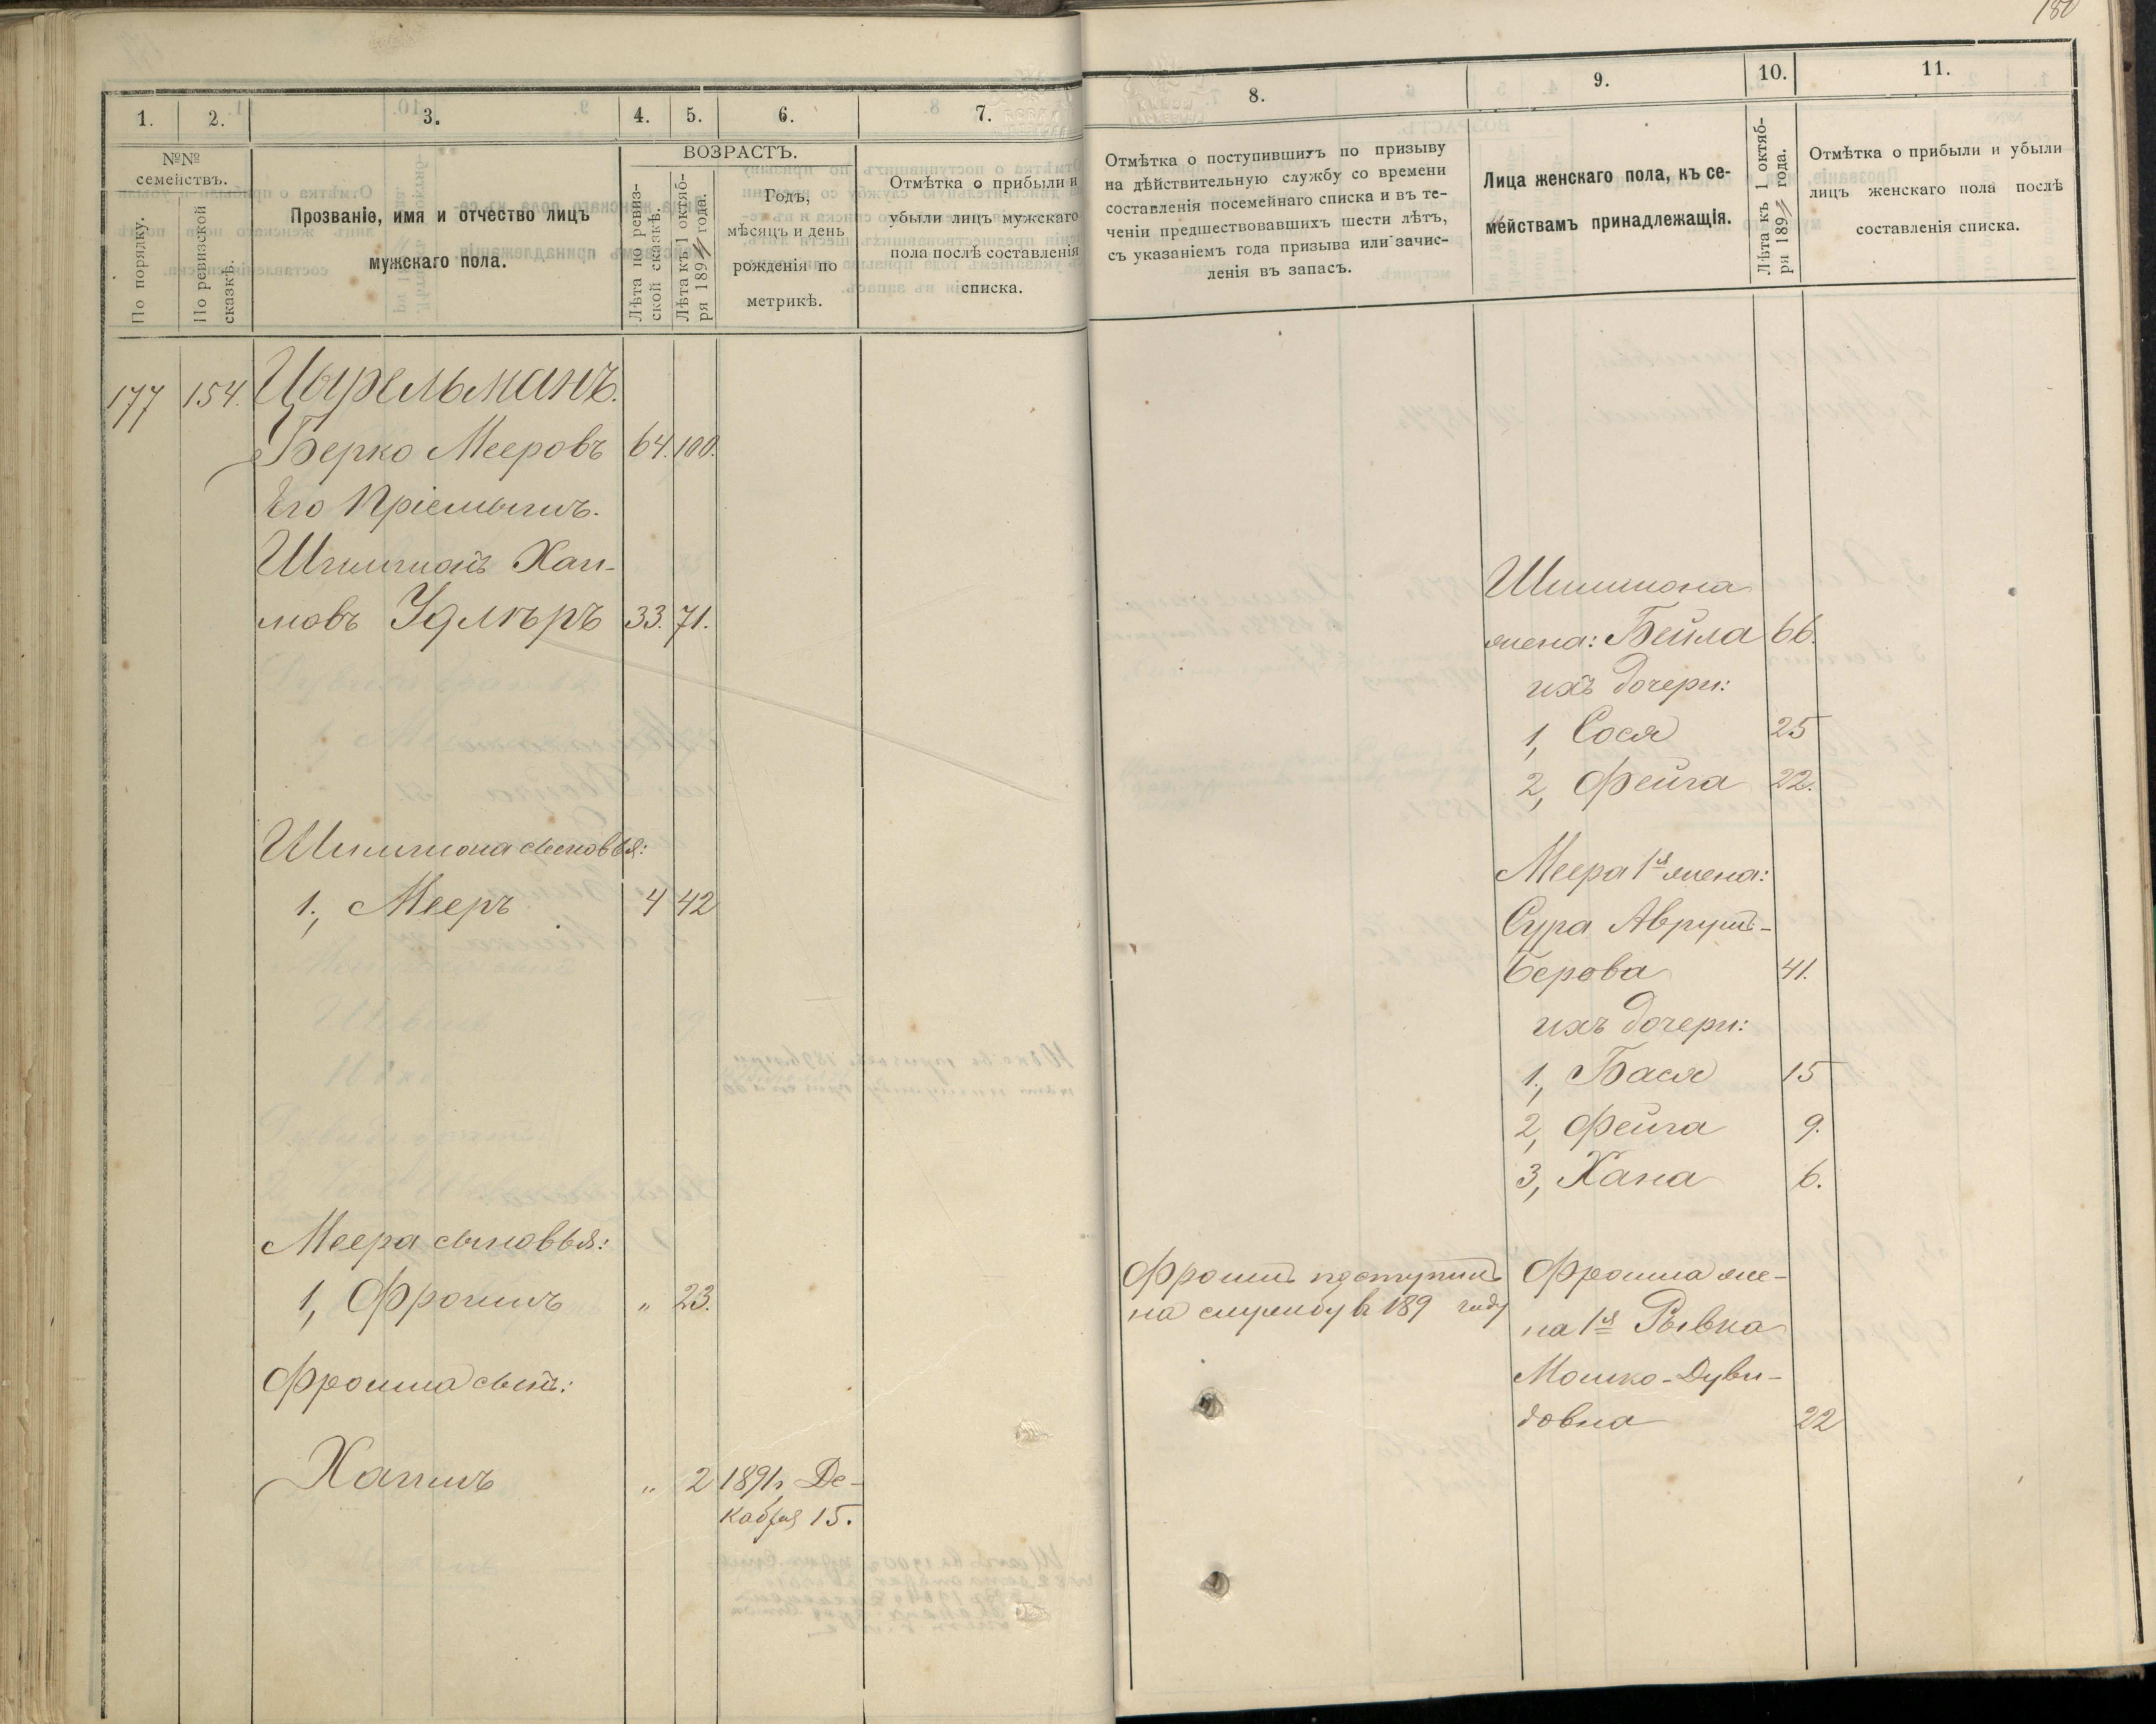 180
1.
2.
3.
4.
5.
6.
7.
№№
семействъ.
По порядку.
По ревизской
сказкѣ.
Прозваніе, имя и отчество лицъ
мужскаго пола.
ВОЗРАСТЪ.
Лѣта по ревиз-
ской сказкѣ.
Лѣта къ 1 октяб-
ря 189 года.
Годъ,
мѣсяцъ и день
рожденія по
метрикѣ.
Отмѣтка о прибыли и
убыли лицъ мужскаго
пола послѣ составленія
списка.
177 154. Цырельманъ.
Берко Мееровъ 64. 100.
Его Пріемышъ.
Шмимонъ Хаи-
мовъ Удлѣръ 33. 71.
Шмимона сыновья:
1., Мееръ 4 42
Меера сыновья:
1, Фроимъ „ 23.
Фроима сынъ:
Хаимъ „ 2 1891г. Де-
кабря 15.
8.
9.
10.
11.
Отмѣтка о поступившихъ по призыву
на дѣйствительную службу со времени
составленія посемейнаго списка и въ те-
ченіи предшествовавшихъ шести лѣтъ,
съ указаніемъ года призыва или зачис-
ленія въ запасъ.
Лица женскаго пола, къ се-
мействамъ принадлежащія.
Лѣта къ 1 октяб-
ря 189 года.
Отмѣтка о прибыли и убыли
лицъ женскаго пола послѣ
составленія списка.
Шмимона
жена: Бейла 66.
ихъ дочери:
1, Сося 25
2, Фейга 22.
Меера 1я жена:
Сура Аврум-
Берова 41.
ихъ дочери:
1., Бася 15
2, Фейга 9.
3, Хана 6.
Фроимъ поступилъ
на службу въ 189 году
Фроима же-
на 1я Рывка
Мошко-Дуви-
довна 22